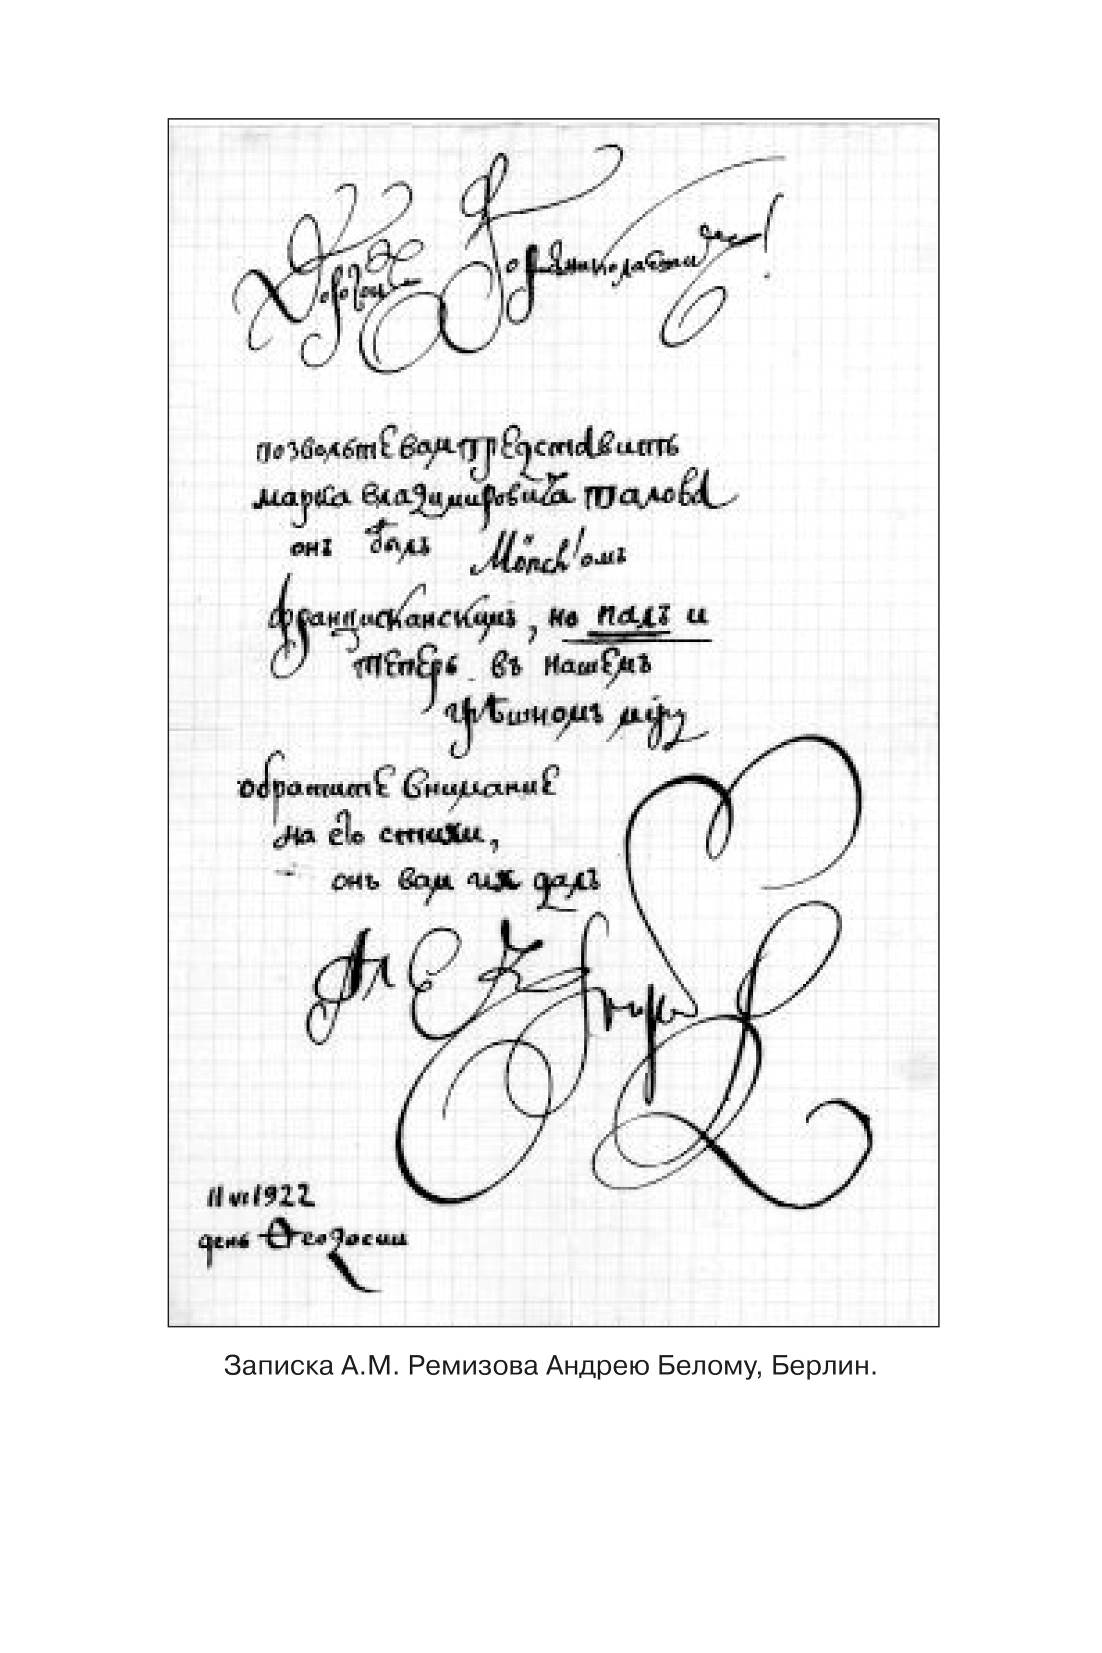 Дорогой Борис Николаевич!
позвольте вам представить
марка владимировича талова
онъ былъ Mönch'омъ
францисканскимъ, но палъ и
теперь въ нашемъ
грѣшномъ мiру
обратите внимание
на его стихи,
онъ вам их далъ
Алексей
11 VI 1922
день Ѳеодосии
Записка А.М. Ремизова Андрею Белому, Берлин.